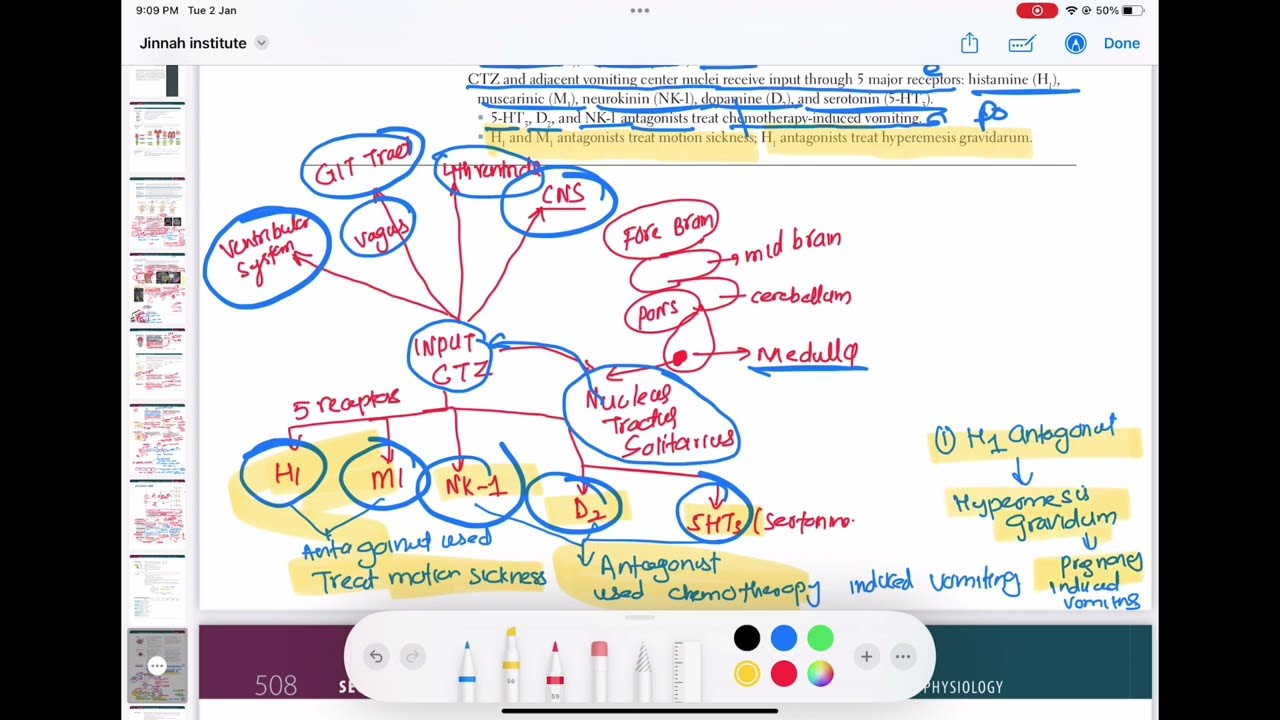 9:09 PM Tue 2 Jan
50%
Jinnah institute
Done
CTZ and adjacent vomiting center nuclei receive input through 5 major receptors: histamine (H₁),
muscarinic (M₁), neurokinin (NK-1), dopamine (D₂), and serotonin (5-HT₃).
5-HT₃, D₂, and NK-1 antagonists treat chemotherapy-induced vomiting.
H₁ and M₁ antagonists treat motion sickness; H₁ antagonists treat hyperemesis gravidarum.
GIT Tract
4th ventricle
CNS
ventribular
system
vagus
Fore Brain
mid brain
cerebellum
pons
Medulla
INPUT
CTZ
Nucleus
Tractus
Solitarius
5 receptors
H1
M1
NK-1
D2
5HT3 (serotonin.
Antagoinst used
Treat motion sickness
Antagonist
used chemotherapy induced vomiting
① H1 Antagonist
Hypermesis
gravidum
Pregnancy
induced
vomiting
508
SE
PHYSIOLOGY
56
59